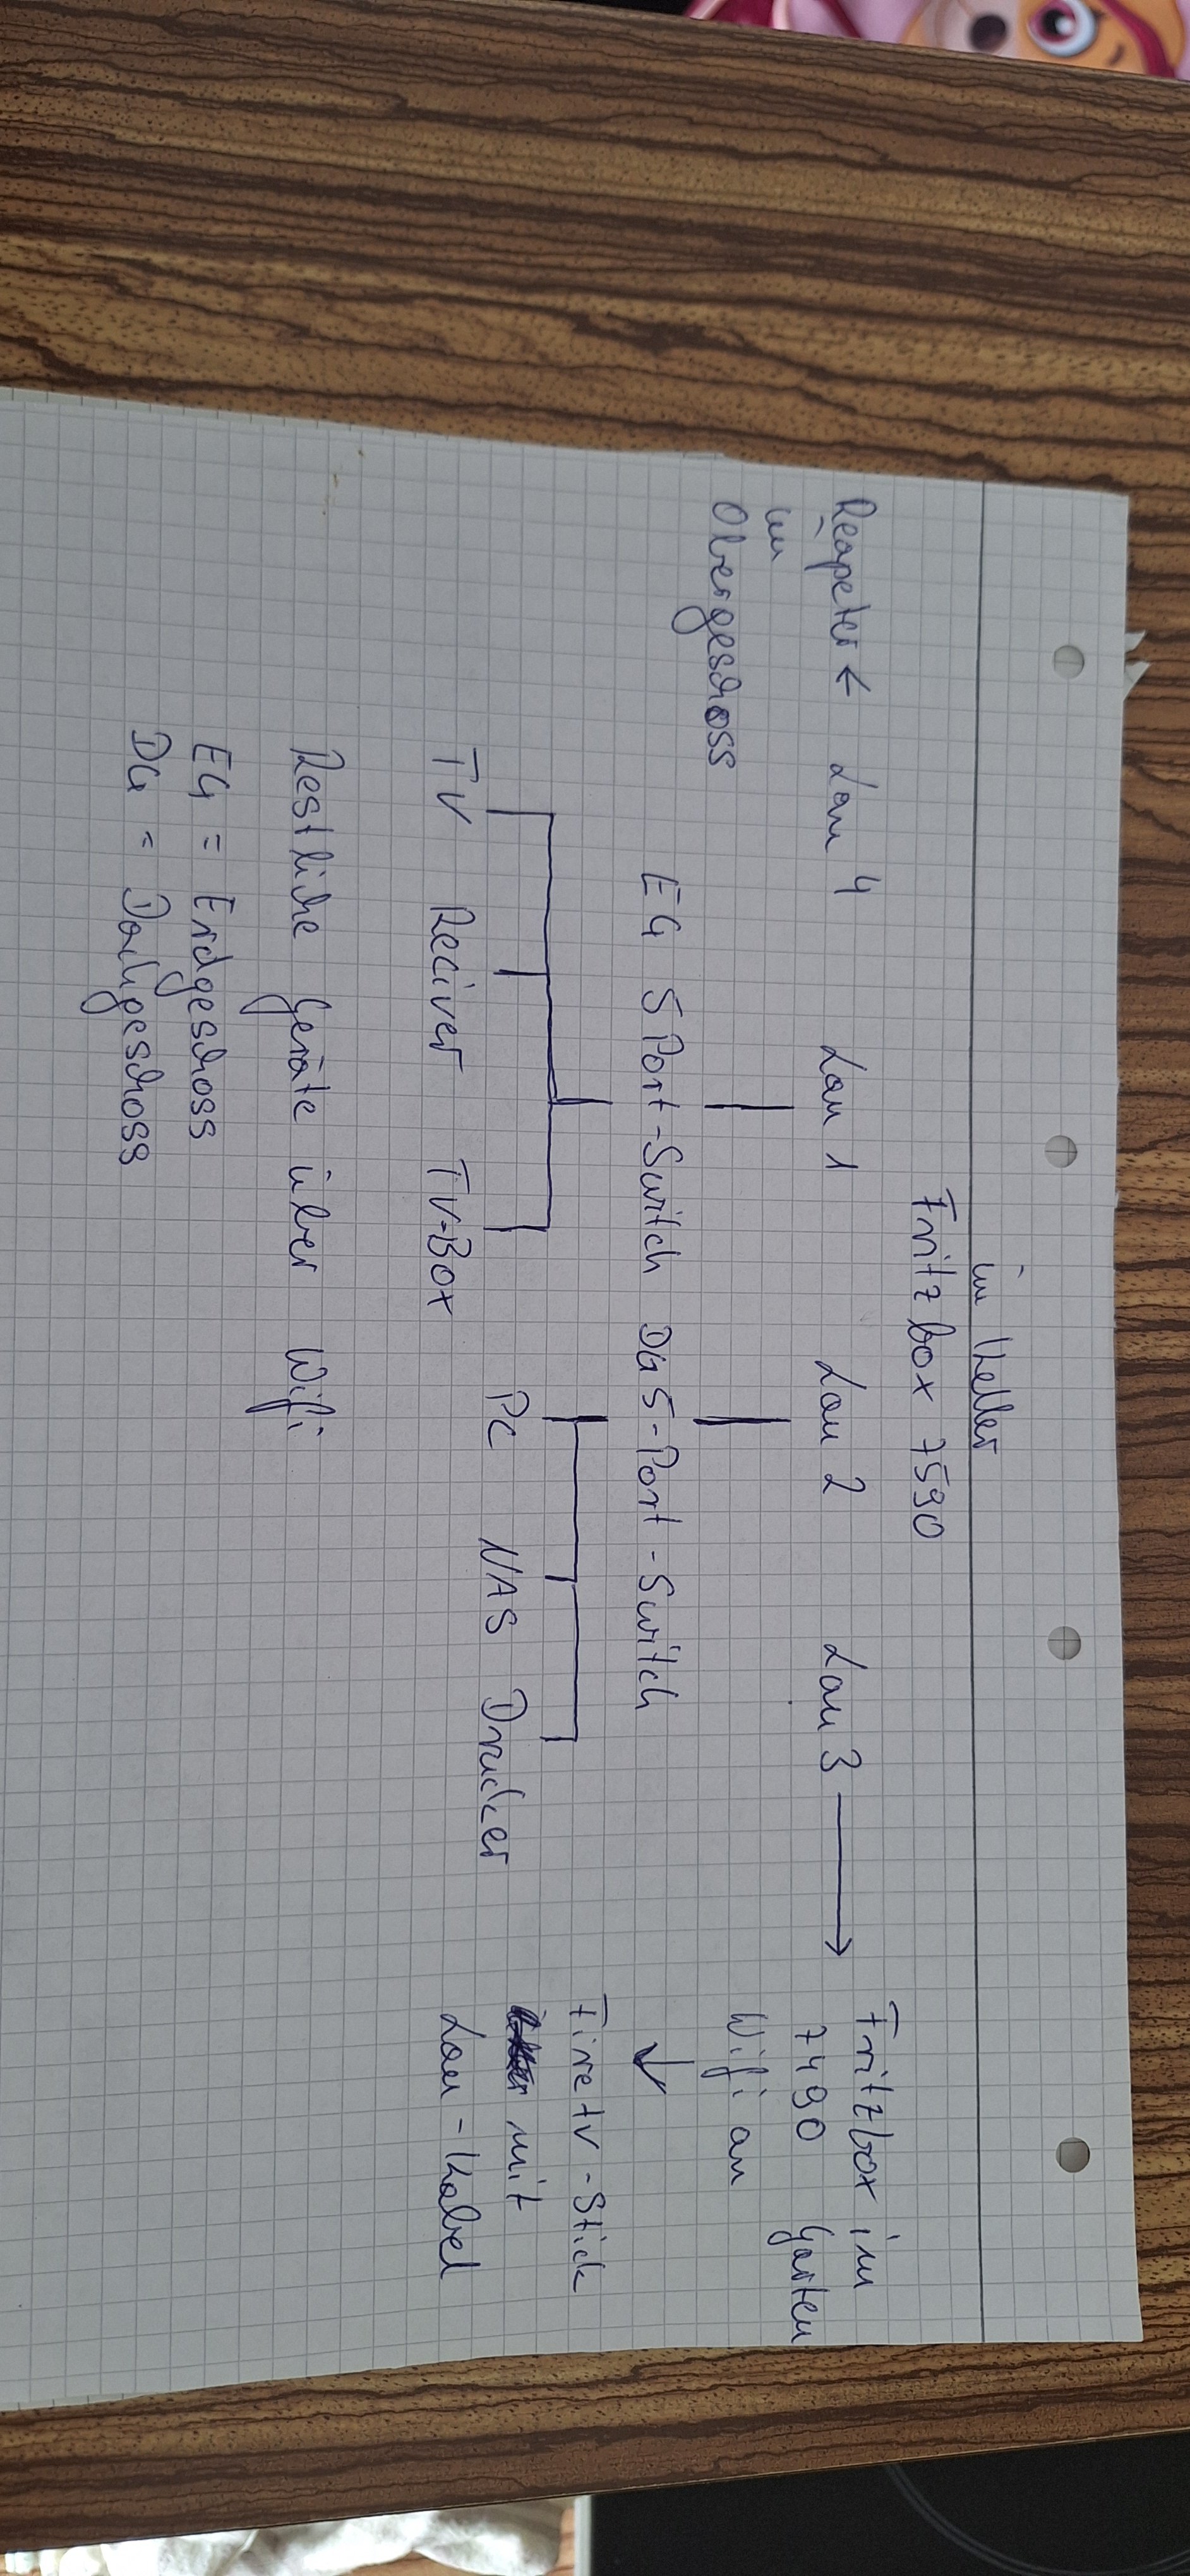 im Keller
Fritzbox 7590
Reapeter ← Lan 4 Lan 1 Lan 2 Lan 3 → Fritzbox im
im 7490 Garten
Obergeschoss Wifi an
EG 5 Port-Switch DG 5-Port-Switch ↓
Firetv-Stick
TV Reciver TV-Box PC NAS Drucker mit
Lan-Kabel
Restliche Geräte über Wifi
EG = Erdgeschoss
DG = Dachgeschoss